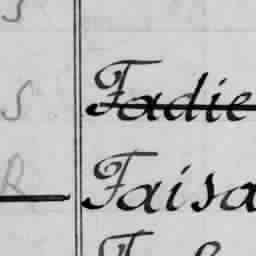 S
S Fadie
R Faisa